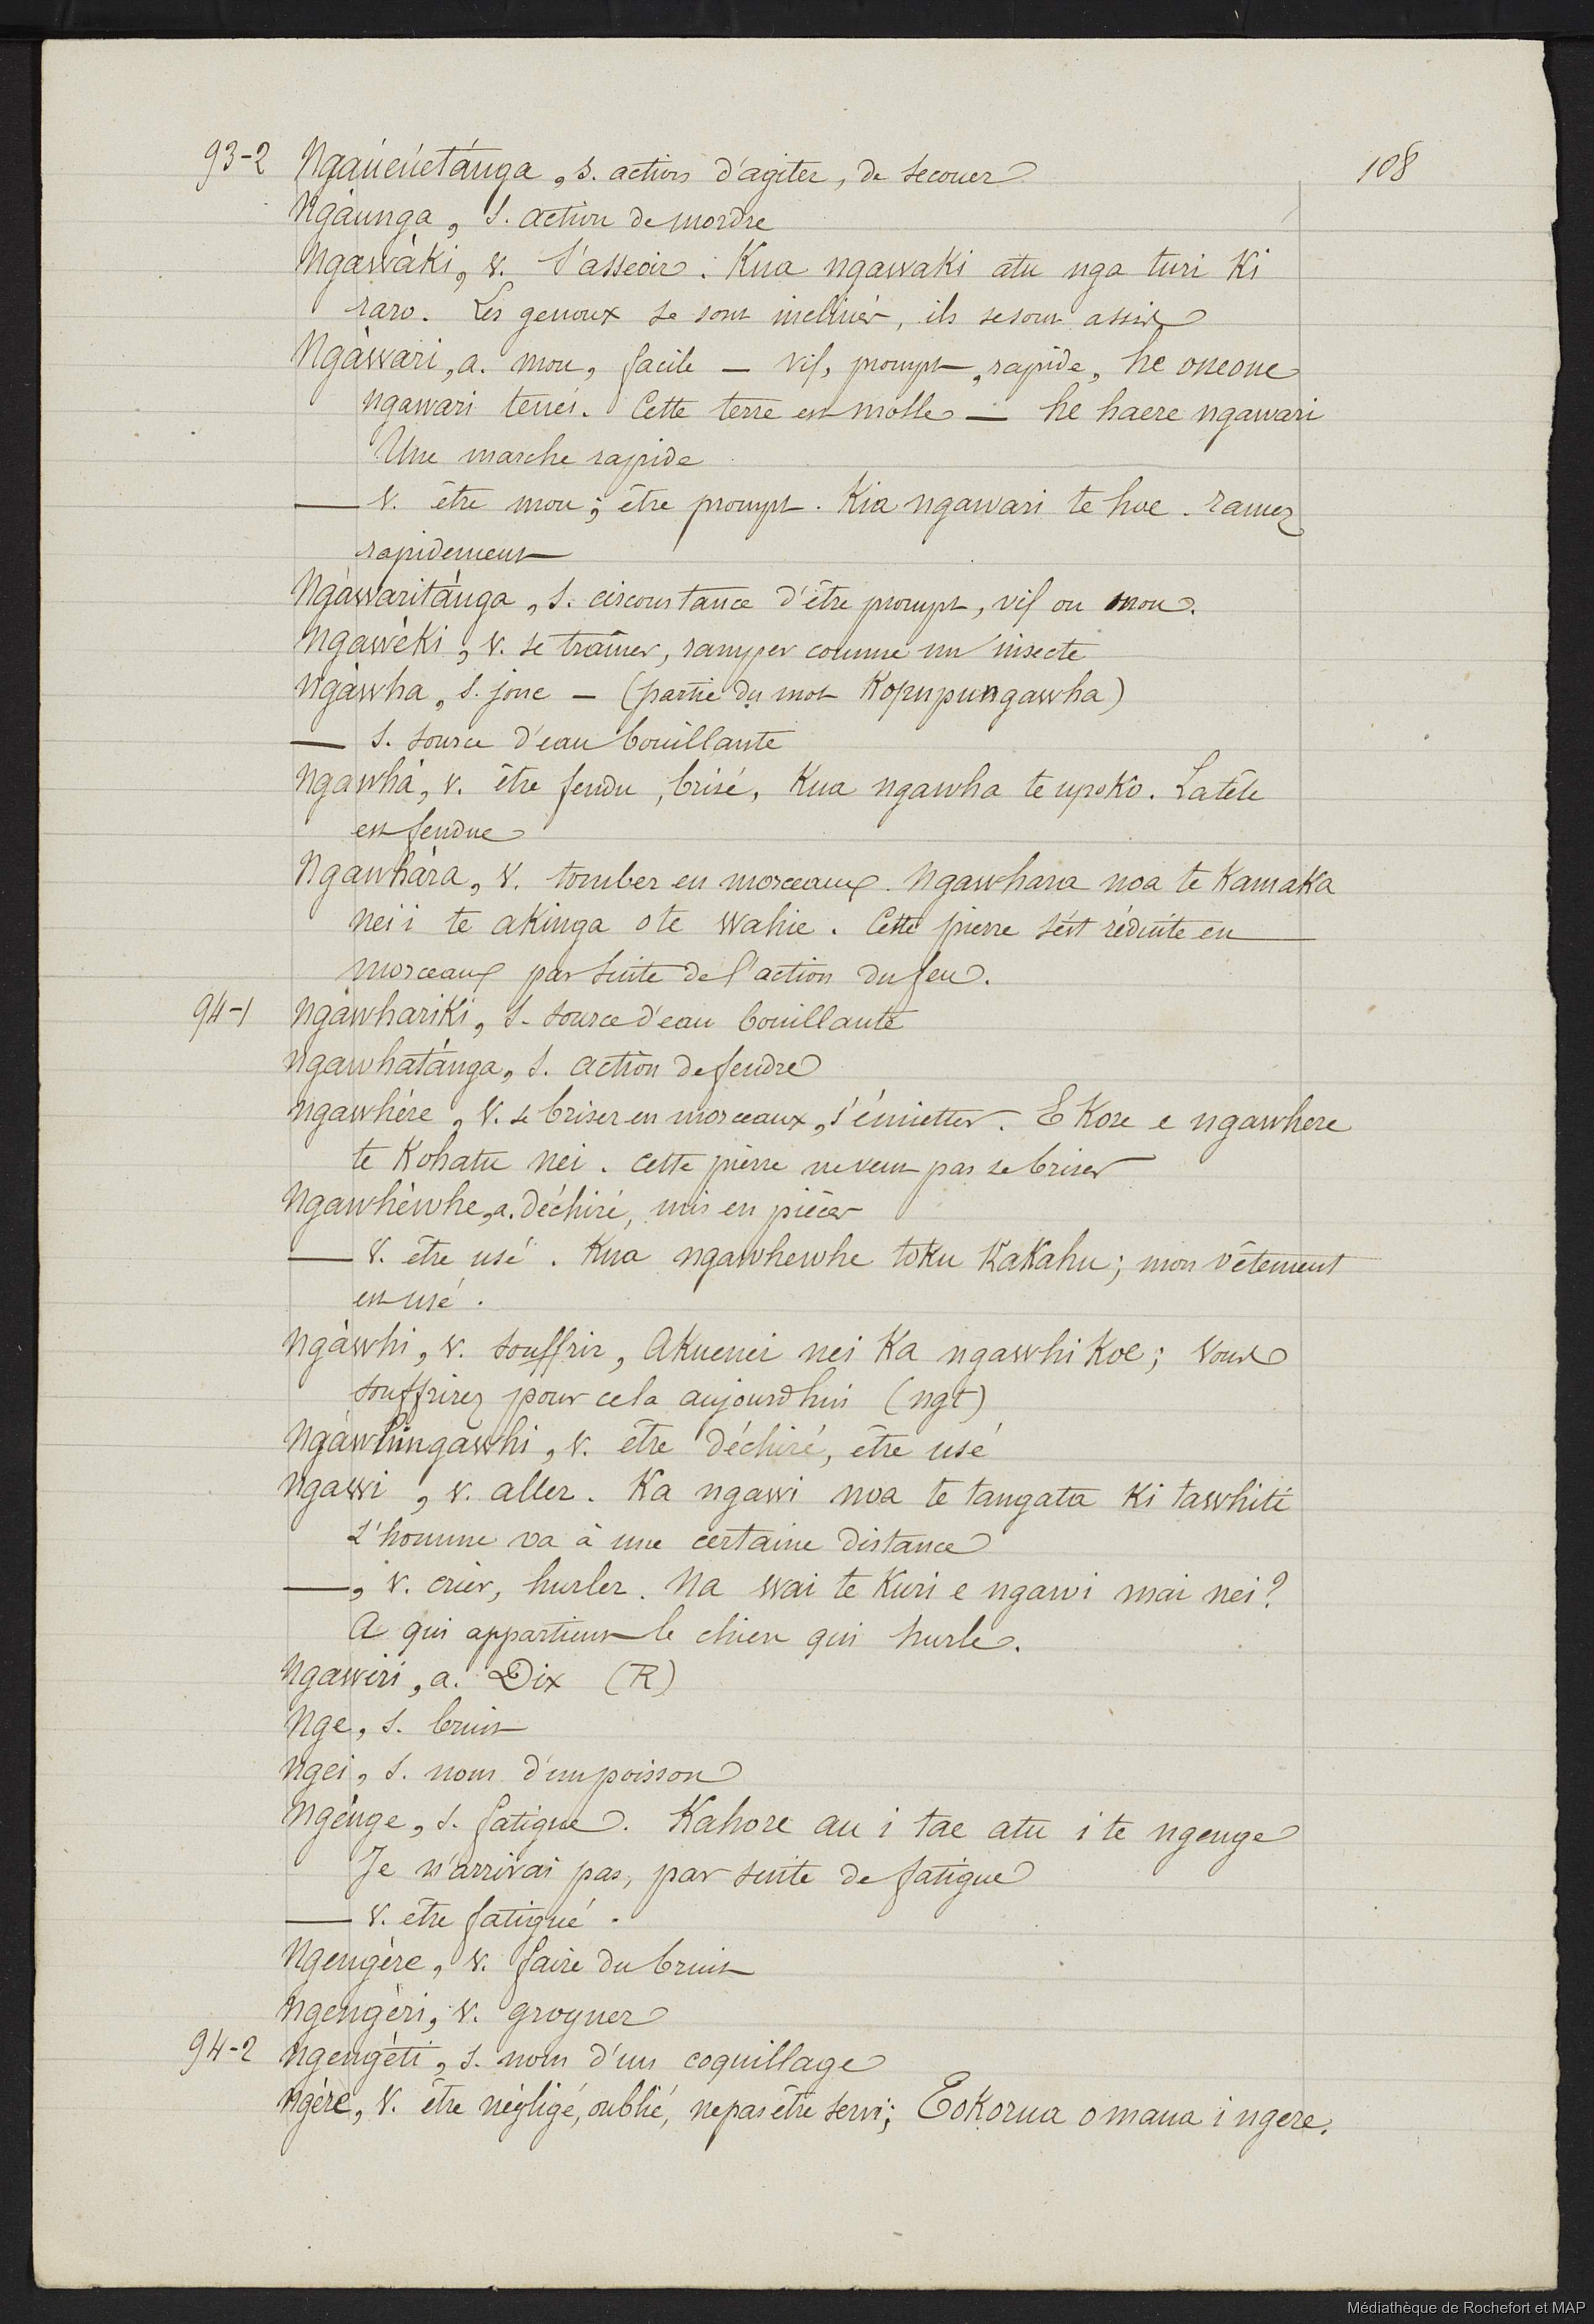 108
93-2 Ngaúeúetánga, s. action d'agiter, de secouer
Ngàunga, s. action de mordre
Ngawàki, v. S'asseoir. Kua ngawaki atu nga turi Ki
raro. Les genoux se sont inclinés, ils se sont assis
Ngàwari, a. mou, facile — vif, prompt, rapide, he oneone
ngawari tenei. Cette terre est molle — he haere ngawari
Une marche rapide
— v. être mou; être prompt. Kia ngawari te hoe. ramez
rapidement
Ngàwaritánga, s. circonstance d'être prompt, vif ou mou.
Ngawèki, v. se traîner, ramper comme un insecte
Ngàwha, s. joue — (partie du mot Kopupungawha)
— s. source d'eau bouillante
Ngawhà, v. être fendu, brisé, Kua ngawha te upoKo. La tête
est fendue
Ngawhàra, v. tomber en morceaux. Ngawhara noa te Kamaka
nei i te aKinga o te wahie. Cette pierre s'est réduite en
morceaux par suite de l'action du feu.
94-1 Ngàwhariki, s. source d'eau bouillante
Ngawhatánga, s. action de fendre
Ngawhére, v. se briser en morceaux, s'émietter. E Kore e ngawhere
te Kohatu nei. Cette pierre ne veut pas se briser
Ngawhèwhe, a. déchiré, mis en pièces
— v. être usé. Kua ngawhewhe toku KaKahu; mon vêtement
est usé.
Ngàwhi, v. souffrir, AKuenei nei Ka ngawhi Koe; Vous
souffrirez pour cela aujourd'hui (ngt)
Ngàwhingawhi, v. être déchiré, être usé
Ngawi, v. aller. Ka ngawi noa te tangata Ki tawhiti
L'homme va à une certaine distance
—, v. crier, hurler. Na wai te Kuri e ngawi mai nei?
A qui appartient le chien qui hurle.
Ngawiri, a. Dix (R)
Nge, s. bruit
Ngei, s. nom d'un poisson
Ngènge, s. fatigue. Kahore au i tae atu i te ngenge
Je n'arrivai pas, par suite de fatigue
— v. être fatigué.
Ngengère, v. faire du bruit
Ngengèri, v. grogner
94-2 Ngengèti, s. nom d'un coquillage
Ngère, v. être négligé, oublié, ne pas être servi; EoKorua o maua i ngere.
Médiathèque de Rochefort et MAP